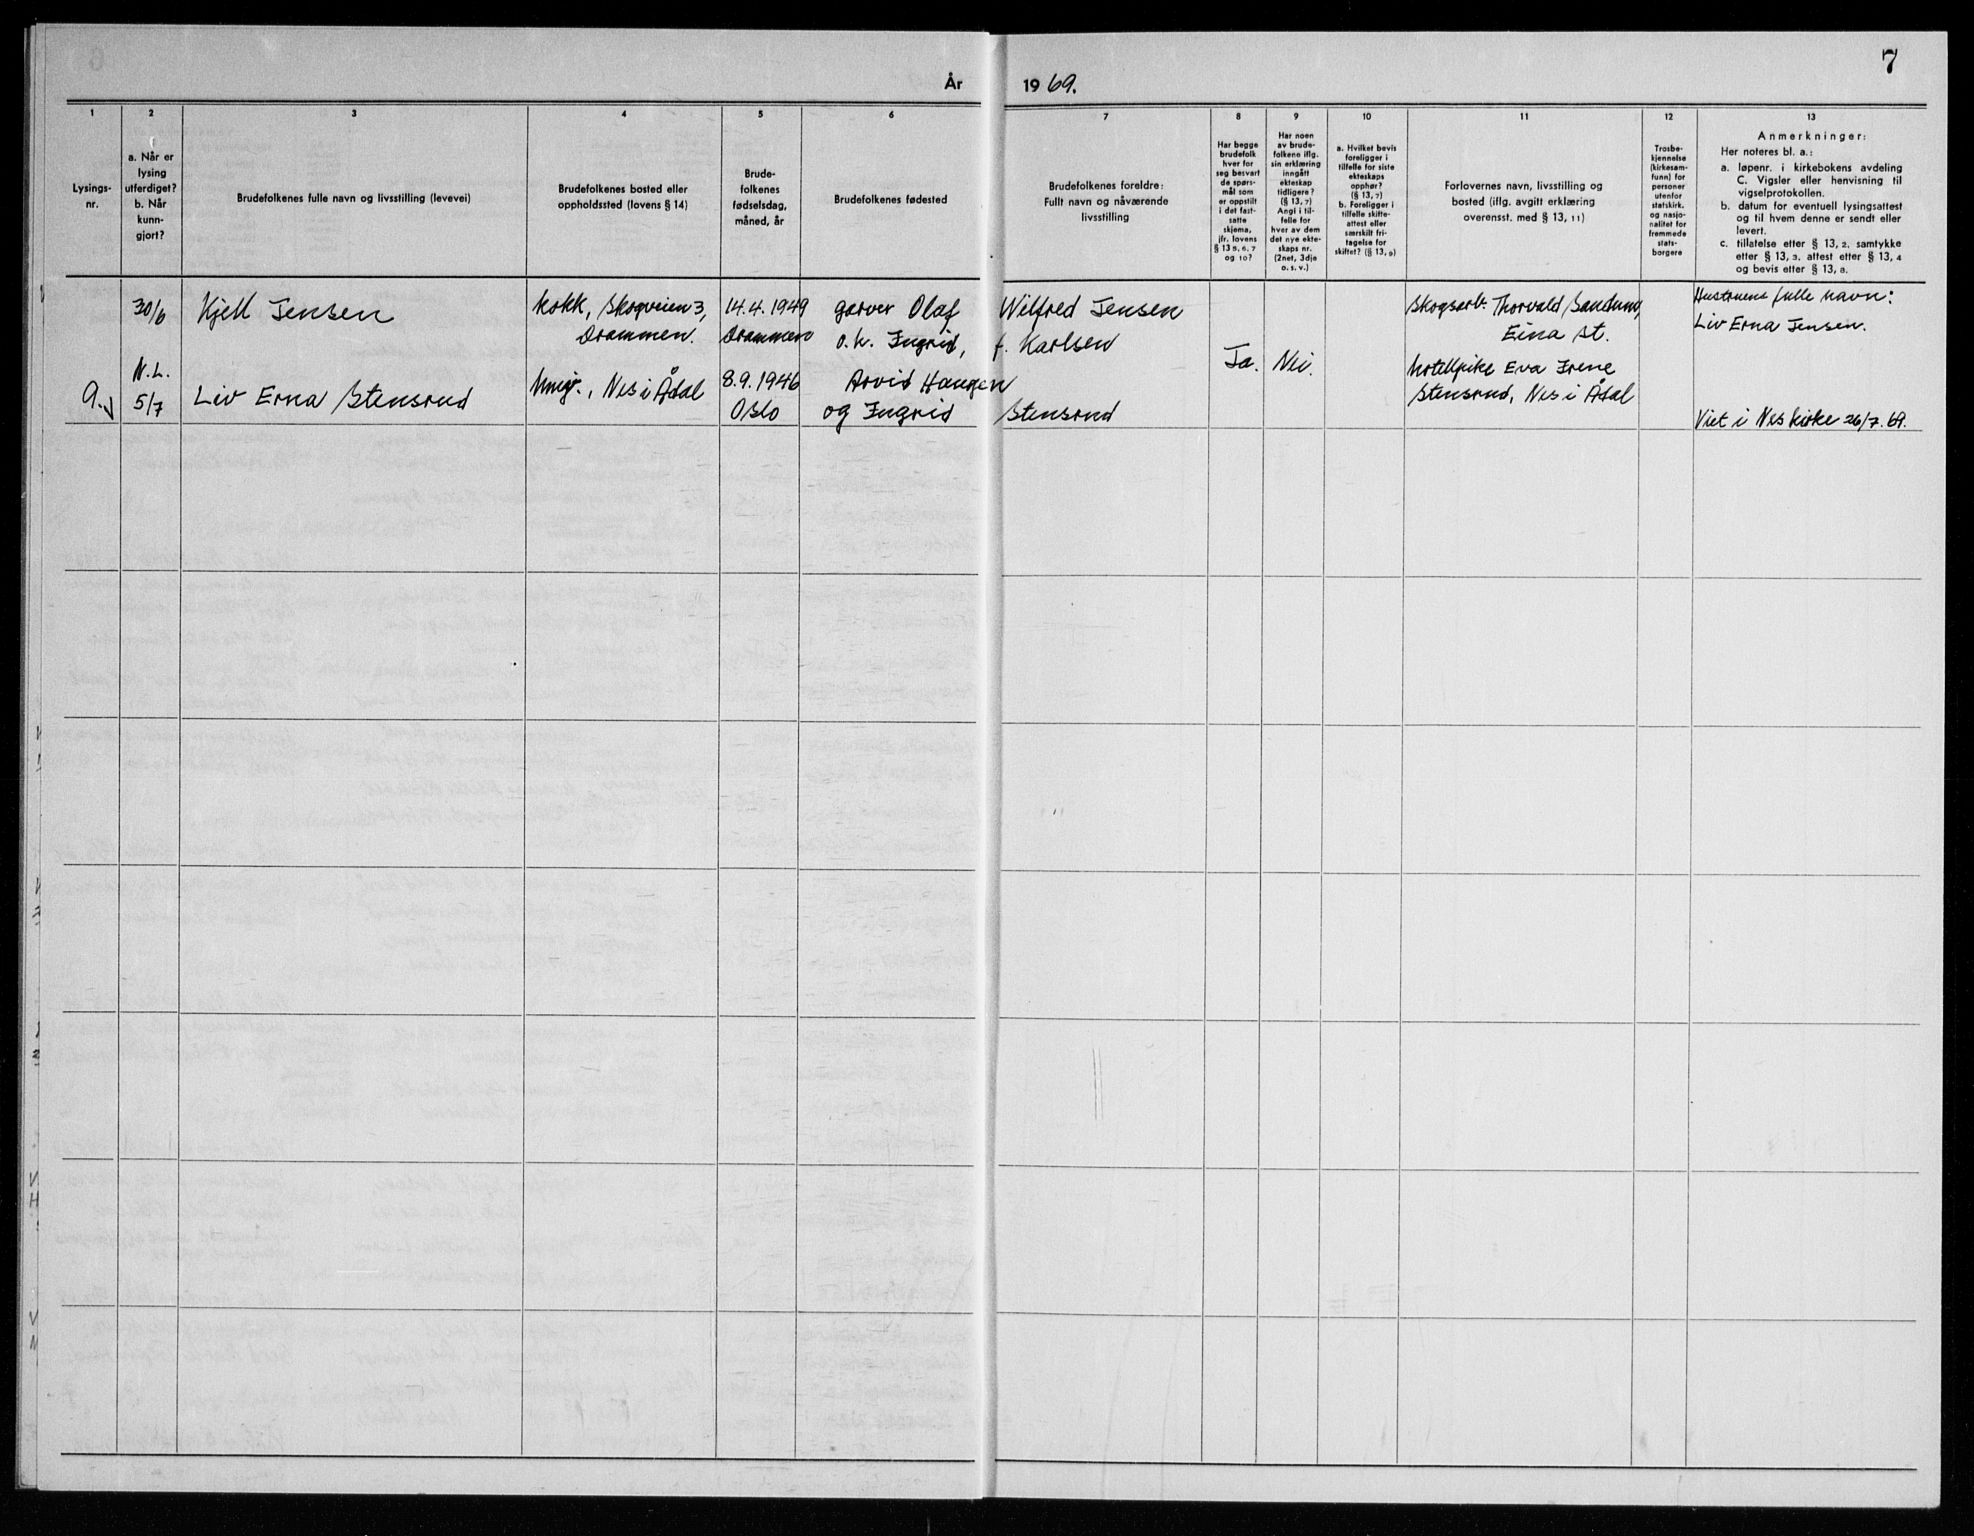 7
År 1969.
1
2
3
4
5
6
7
8
9
10
11
12
13
Lysings-
nr.
a. Når er
lysing
utferdiget?
b. Når
kunn-
gjort?
Brudefolkenes fulle navn og livsstilling (levevei)
Brudefolkenes bosted eller
oppholdssted (lovens § 14)
Brude-
folkenes
fødselsdag,
måned, år
Brudefolkenes fødested
Brudefolkenes foreldre:
Fullt navn og nåværende
livsstilling
Har begge
brudefolk
hver for
seg besvart
de spørs-
mål som
er oppstilt
i det fast-
satte
skjema,
jfr. lovens
§ 13 5, 6, 7
og 10?
Har noen
av brude-
folkene iflg.
sin erklæring
inngått
ekteskap
tidligere?
(§ 13, 7)
Angi i til-
felle for
hver av dem
det nye ekte-
skaps nr.
(2net, 3dje
o. s. v.)
a. Hvilket bevis
foreligger i
tilfelle for siste
ekteskaps
opphør?
(§ 13, 7)
b. Foreligger i
tilfelle skifte-
attest eller
særskilt fri-
tagelse for
skiftet? (§ 13, 9)
Forlovernes navn, livsstilling og
bosted (iflg. avgitt erklæring
overensst. med § 13, 11)
Trosbe-
kjennelse
(kirkesam-
funn) for
personer
utenfor
statskirk.
og nasjo-
nalitet for
fremmede
stats-
borgere
Anmerkninger:
Her noteres bl. a.:
a. løpenr. i kirkebokens avdeling
C. Vigsler eller henvisning til
vigselprotokollen.
b. datum for eventuell lysingsattest
og til hvem denne er sendt eller
levert.
c. tillatelse etter § 13, 2. samtykke
etter § 13, 3. attest etter § 13, 4
og bevis etter § 13, 8.
30/6 Kjell Jensen
kokk, Skogveien 3,
Drammen.
14.4.1949
Drammen
garver Olaf Wilfred Jensen
o.h. Ingrid, f. Karlsen
Skogsarb. Thorvald Sandung,
Eina st.
Hustruens fulle navn:
Liv Erna Jensen.
9.
N.L.
5/7
Liv Erna Stensrud
Nes i Ådal
8.9.1946
Oslo
Arvid Haugen
og Ingrid Stensrud
Ja.
Nei.
hotellpike Eva Irene
Stensrud, Nes i Ådal
Viet i Nes kirke 26/7.69.